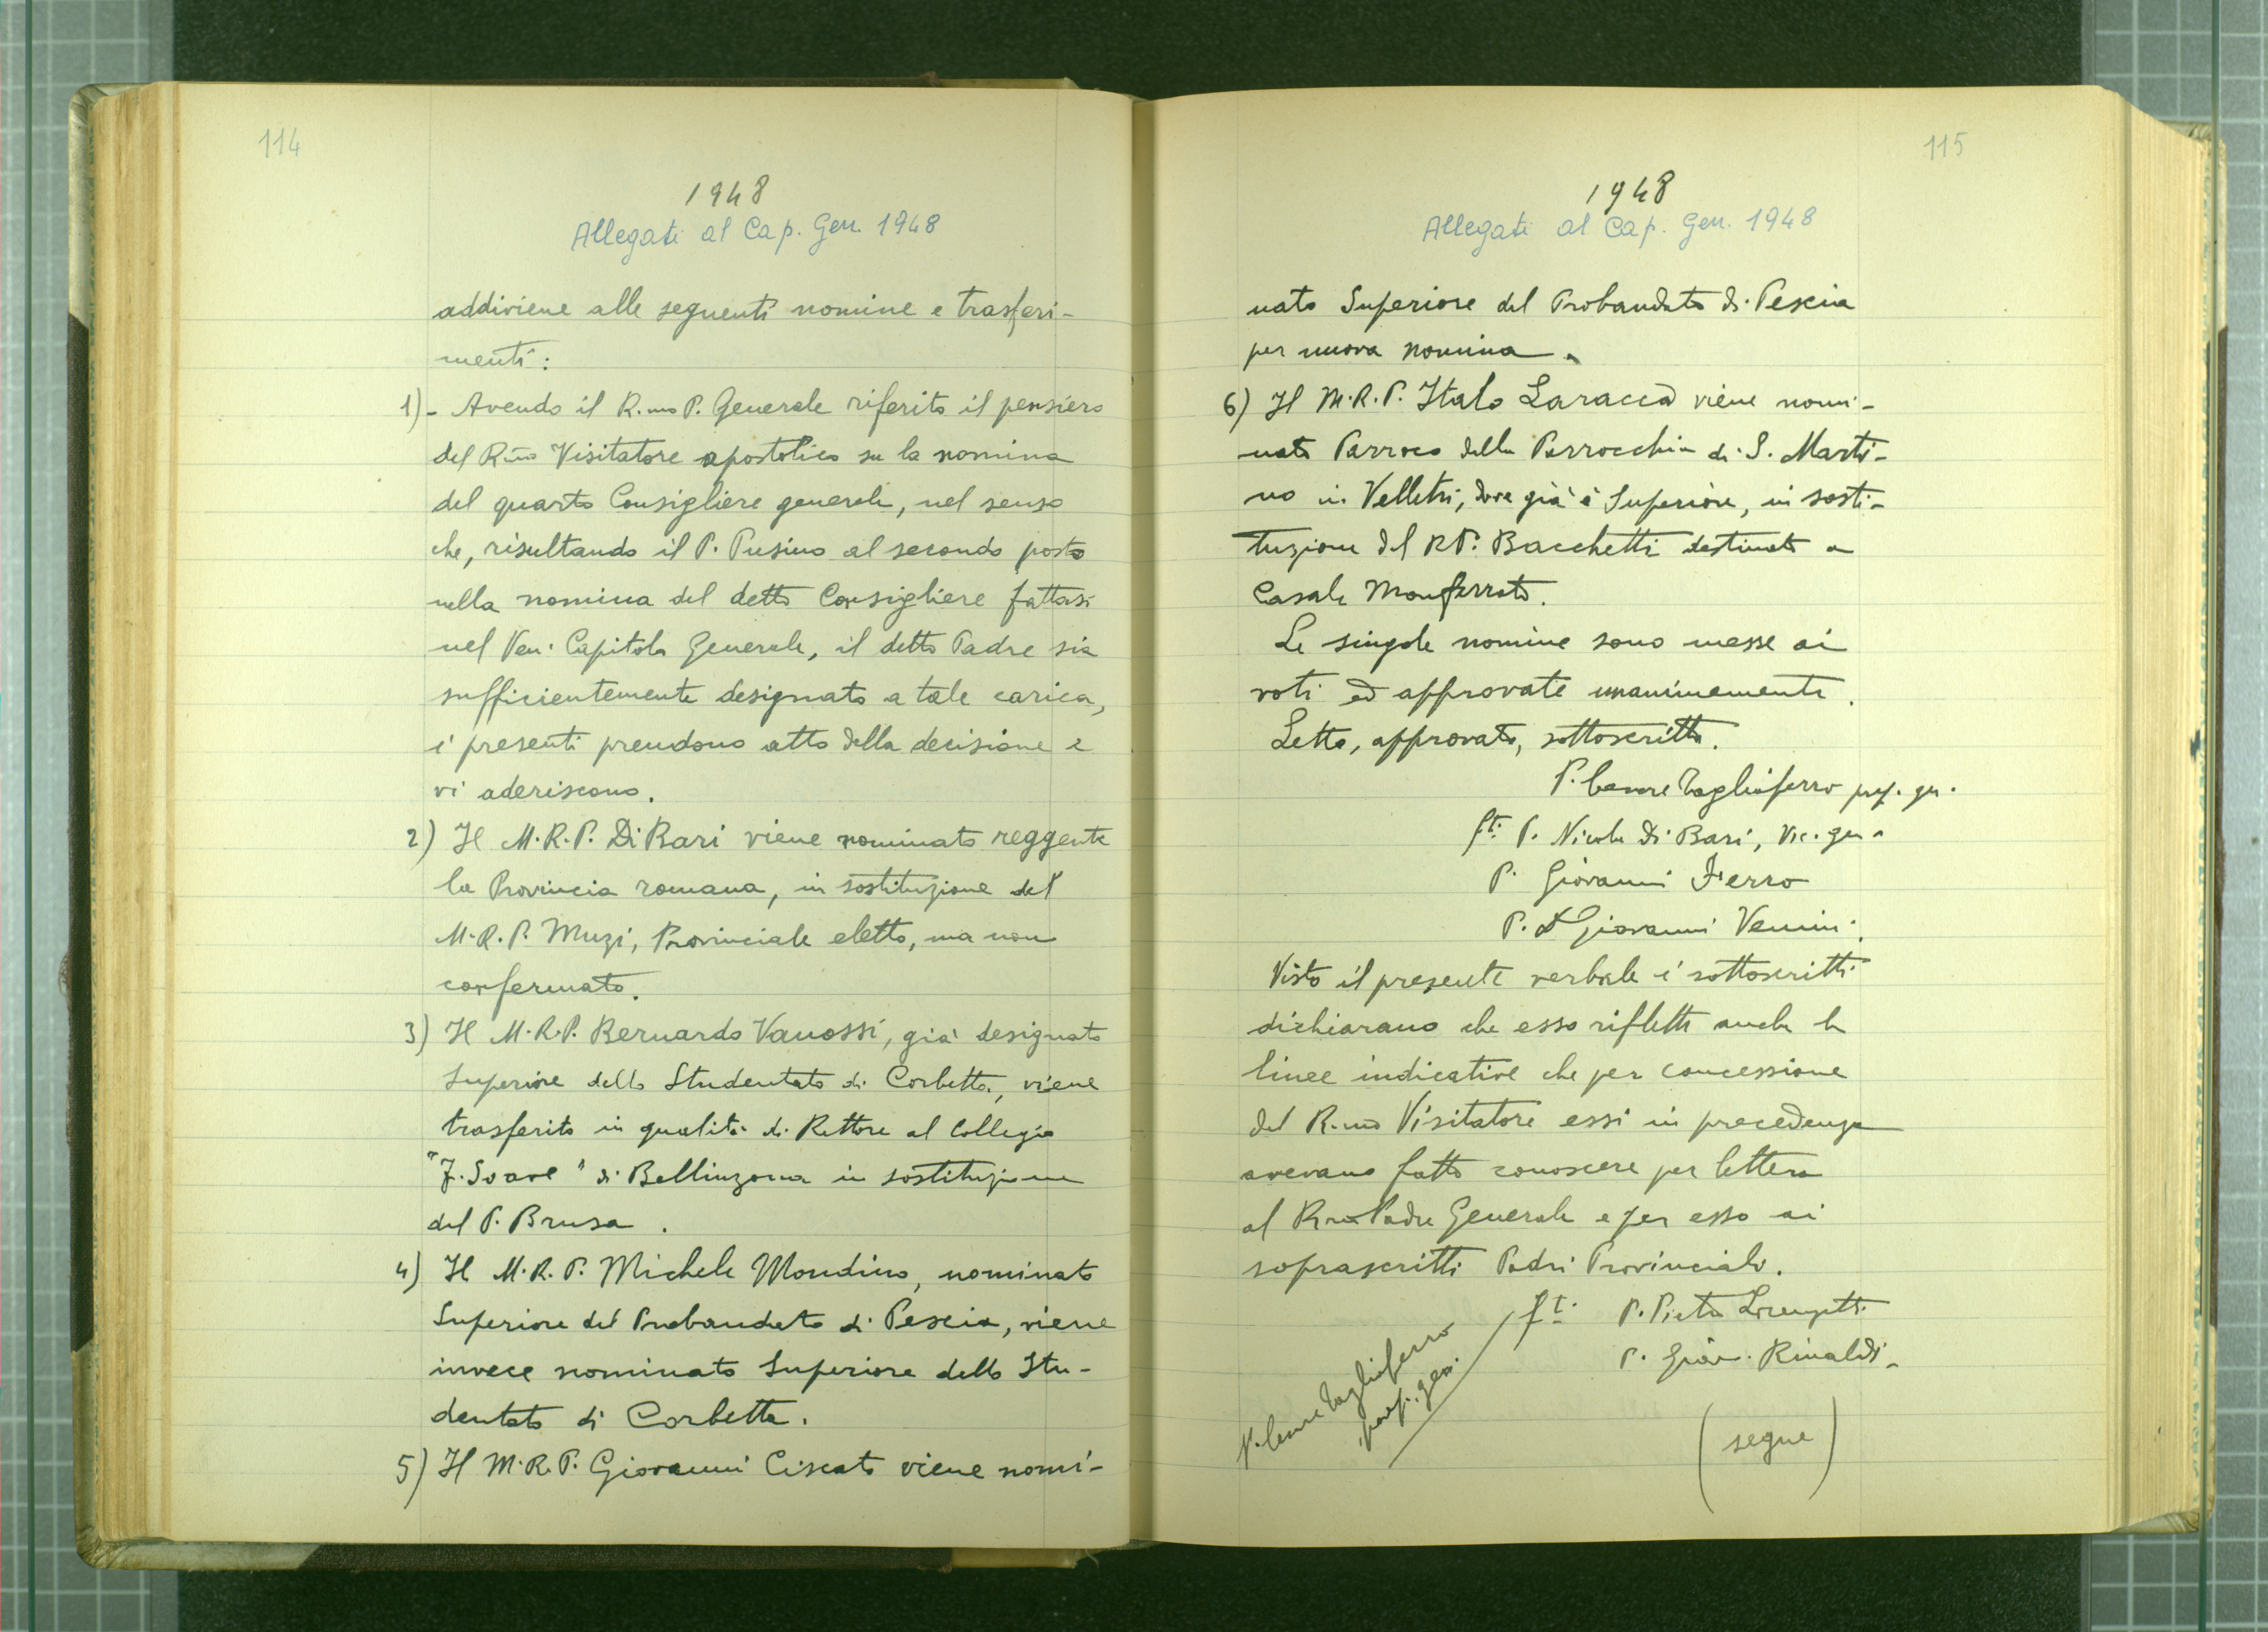 114
1948
Allegati al Cap. Gen. 1948
addiviene alle seguenti nomine e trasferi-
menti:
1)- Avendo il R.mo P. Generale riferito il pensiero
del R.mo Visitatore apostolico su la nomina
del quarto Consigliere generale, nel senso
che, risultando il P. Pusino al secondo posto
nella nomina del detto Consigliere fattasi
nel Ven. Capitolo Generale, il detto Padre sia
sufficientemente designato a tale carica,
i presenti prendono atto della decisione e
vi aderiscono.
2) Il M.R.P. Di Bari viene nominato reggente
la Provincia romana, in sostituzione del
M.R.P. Muzi, Provinciale eletto, ma non
confermato.
3) Il M.R.P. Bernardo Vanossi, già designato
Superiore dello Studentato di Corbetta, viene
trasferito in qualità di Rettore al Collegio
"F. Soave" di Bellinzona in sostituzione
del P. Brusa.
4) Il M.R.P. Michele Mondino, nominato
Superiore del Probandato di Pescia, viene
invece nominato Superiore dello Stu-
dentato di Corbetta.
5) Il M.R.P. Giovanni Ciscato viene nomi-
115
1948
Allegati al Cap. Gen. 1948
nato Superiore del Probandato di Pescia
per nuova nomina.
6) Il M.R.P. Italo Laracca viene nomi-
nato Parroco della Parrocchia di S. Marti-
no in Velletri, dove già è Superiore, in sosti-
tuzione del RP. Bacchetti destinato a
Casale Monferrato.
Le singole nomine sono messe ai
voti ed approvate unanimemente.
Letto, approvato, sottoscritto.
P. Cesare Tagliaferro prep. gen.
f.ti P. Nicola Di Bari, Vic. gen.
P. Giovanni Ferro
P. D Giovanni Venini.
Visto il presente verbale i sottoscritti
dichiarano che esso riflette anche le
linee indicative che per concessione
del R.mo Visitatore essi in precedenza
avevano fatto conoscere per lettera
al R.mo Padre Generale e per esso ai
soprascritti Padri Provinciali.
f.ti P. Pietro Lorenzetti
P. Giov. Rinaldi.
P. Cesare Tagliaferro
prep. gen.
(segue)